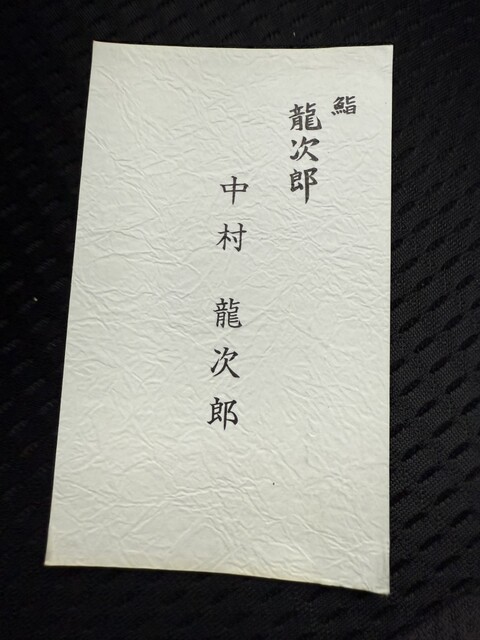 鮨
龍次郎
中村 龍次郎